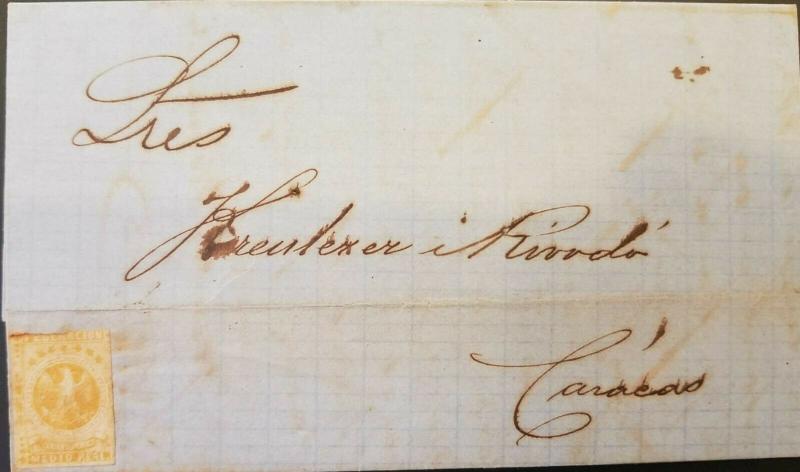 Sres
Kreutzer i Rivodó
Carácas
MEDIO REAL